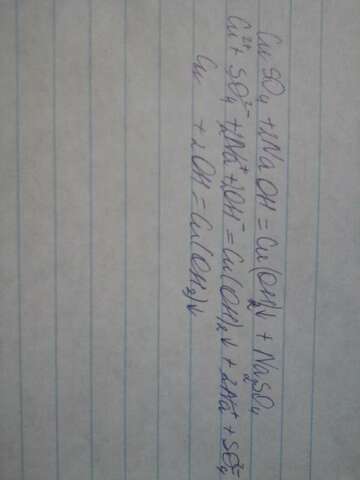 CuSO₄ + 2NaOH = Cu(OH)₂↓ + Na₂SO₄
Cu²⁺ + SO₄²⁻ + 2Na⁺ + 2OH⁻ = Cu(OH)₂↓ + 2Na⁺ + SO₄²⁻
Cu + 2OH = Cu(OH₂)↓